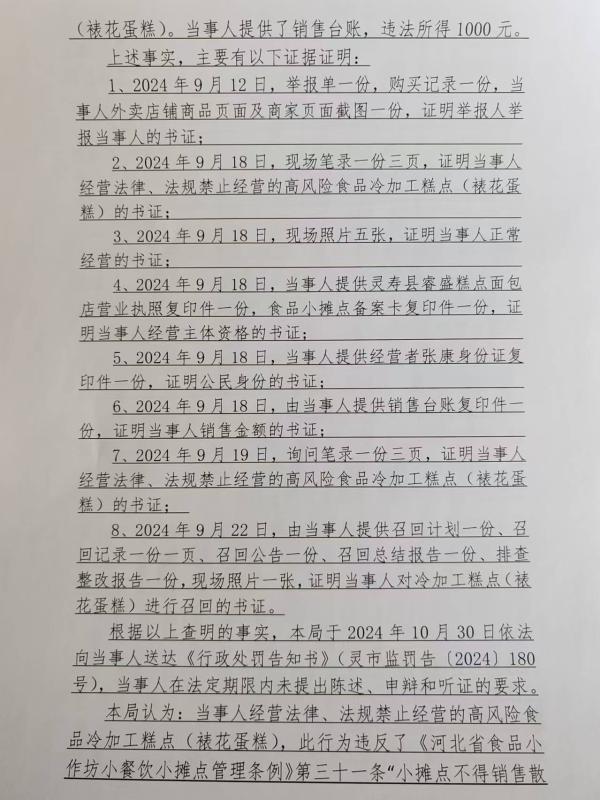 （裱花蛋糕）。当事人提供了销售台账，违法所得1000元。
上述事实，主要有以下证据证明：
1、2024年9月12日，举报单一份，购买记录一份，当
事人外卖店铺商品页面及商家页面截图一份，证明举报人举
报当事人的书证；
2、2024年9月18日，现场笔录一份三页，证明当事人
经营法律、法规禁止经营的高风险食品冷加工糕点（裱花蛋
糕）的书证；
3、2024年9月18日，现场照片五张，证明当事人正常
经营的书证；
4、2024年9月18日，当事人提供灵寿县睿盛糕点面包
店营业执照复印件一份，食品小摊点备案卡复印件一份，证
明当事人经营主体资格的书证；
5、2024年9月18日，当事人提供经营者张康身份证复
印件一份，证明公民身份的书证；
6、2024年9月18日，由当事人提供销售台账复印件一
份，证明当事人销售金额的书证；
7、2024年9月19日，询问笔录一份三页，证明当事人
经营法律、法规禁止经营的高风险食品冷加工糕点（裱花蛋
糕）的书证；
8、2024年9月22日，由当事人提供召回计划一份、召
回记录一份一页、召回公告一份、召回总结报告一份、排查
整改报告一份，现场照片一张，证明当事人对冷加工糕点（裱
花蛋糕）进行召回的书证。
根据以上查明的事实，本局于2024年10月30日依法
向当事人送达《行政处罚告知书》（灵市监罚告〔2024〕180
号），当事人在法定期限内未提出陈述、申辩和听证的要求。
本局认为：当事人经营法律、法规禁止经营的高风险食
品冷加工糕点（裱花蛋糕），此行为违反了《河北省食品小
作坊小餐饮小摊点管理条例》第三十一条“小摊点不得销售散